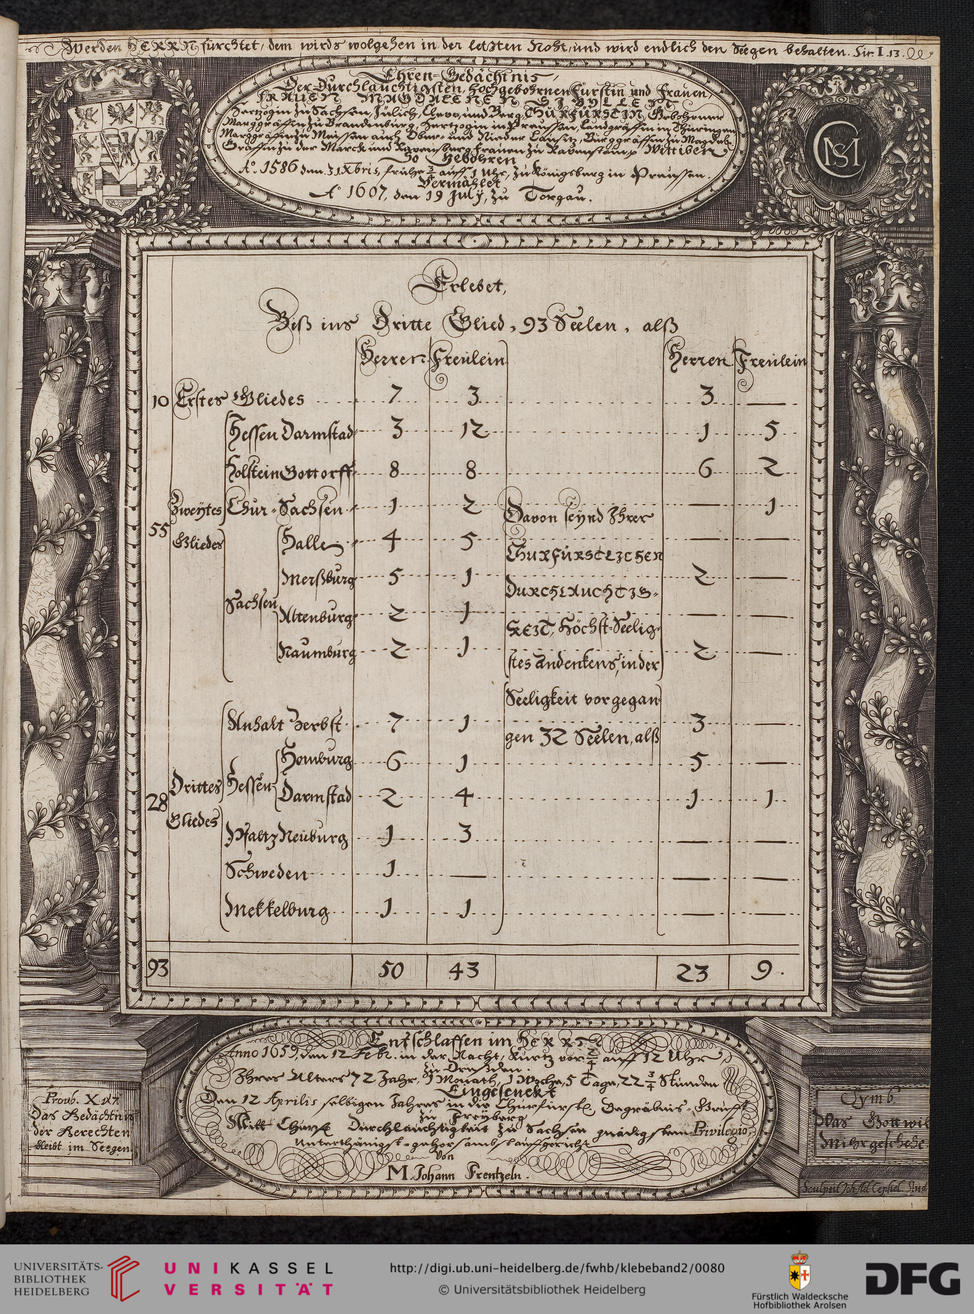 Werden HERRN fürchtet, dem wirds wolgehen in der letzten Noht, und wird endlich den Seegen behalten. Sir. I. 13.
Ehren-Gedächtnis,
Der Durchlauchtigsten, Hochgebohrnen Fürstin und Frauen,
FRAUEN MAGDALENEN SIBYLLEN
Hertzogin zu Sachsen, Jülich, Cleve, und Berg, CHURFÜRSTIN, Gebohrner
Marggräfin zu Brandenburg, Hertzogin in Preussen, Landgräfin in Thüringen
Marggräfin zu Meissen auch Ober- und Nieder Lausitz, Burggräfin zu Magdeb.
Gräfin zu der Marck und Ravensberg, Frauen zu Ravenstein, Wittiben
So Gebohren
Ao. 1586 den 31 Xbris, frühe auff 1 Uhr, zu Königsburg in Preussen.
Vermählet
Ao 1607, den 19 July, zu Torgau.
Erlebet,
Biß ins Dritte Glied, 93 Seelen, alß
Herren Freulein Herren Freulein
10 Erstes Gliedes 7 3 3 —
Hessen Darmstad 3 12 1 5
Holstein Gottorff 8 8 6 2
Zweytes Chur-Sachsen 1 2 Davon seynd Ihrer — 1
55 Gliedes Halle 4 5 CHURFÜRSTLICHEN — —
Merßburg 5 1 DURCHLAUCHTIG- 2 —
Sachsen Altenburg 2 1 KEIT, Höchst-Seelig- — —
Naumburg 2 1 stes Andenckens, in der 2 —
Seeligkeit vorgegan
Anhalt Zerbst 7 1 gen 32 Seelen, alß 3 —
Homburg 6 1 5 —
28 Drittes Gliedes Hessen Darmstad 2 4 1 1
Pfaltz Neuburg 1 3 — —
Schweden 1 — — —
Mekkelburg 1 1 — —
93 50 43 23 9.
Entschlaffen im HERRN
Anno 1659, den 12 Febr. in der Nacht, kurtz vor auff 12 Uhr
zu Dreßden.
Ihres Alters 72 Jahr, 1 Monath, 1 Woche, 5 Tage, 22 3/4 Stunden
Eingesenckt
Den 12 Aprilis selbigen Jahres in die Churfürstl. Begräbnis-Grufft
zu Freyberg
Mitt Churf. Durchlauchtigkeit zu Sachsen gnädigstem Privilegio,
Unterthänigst-gehorsambst auffgericht
von
M. Johann Frentzeln.
Prov. X v. 7.
Das Gedächtnis
der Gerechten
bleibt im Seegen
Symb.
Was Gott wil
Mir geschehe
UNIVERSITÄTS-
BIBLIOTHEK
HEIDELBERG
UNIKASSEL
VERSITÄT
http://digi.ub.uni-heidelberg.de/fwhb/klebeband2/0080
© Universitätsbibliothek Heidelberg
Fürstlich Waldecksche
Hofbibliothek Arolsen
DFG